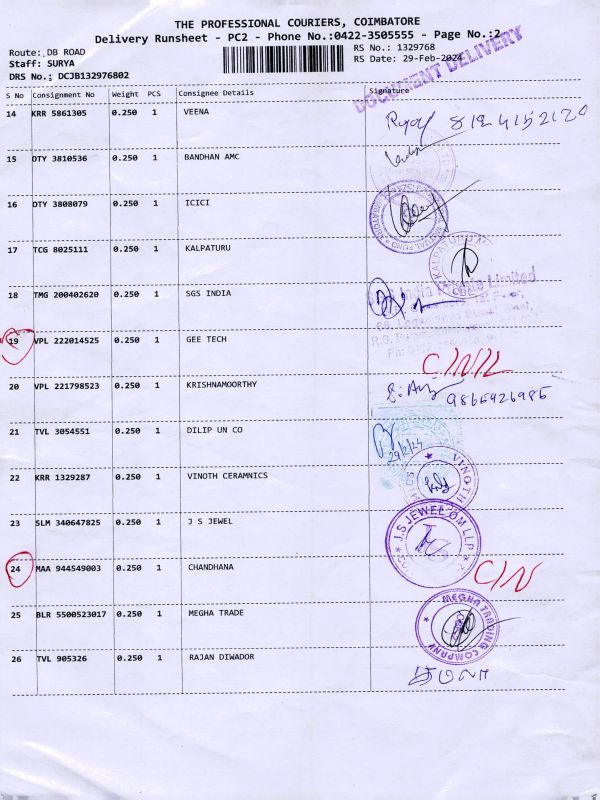 THE PROFESSIONAL COURIERS, COIMBATORE
Delivery Runsheet - PC2 - Phone No.:0422-3505555 - Page No.:2
Route: DB ROAD RS No.: 1329768
Staff: SURYA RS Date: 29-Feb-2024
DRS No.: DCJB132976802
DOCUMENT DELIVERY
S No Consignment No Weight PCS Consignee Details Signature
14 KRR 5861305 0.250 1 VEENA
15 DTY 3810536 0.250 1 BANDHAN AMC
16 DTY 3808079 0.250 1 ICICI
17 TCG 8025111 0.250 1 KALPATURU
18 TMG 200402620 0.250 1 SGS INDIA
19 VPL 222014525 0.250 1 GEE TECH
20 VPL 221798523 0.250 1 KRISHNAMOORTHY 9865926985
21 TVL 3054551 0.250 1 DILIP UN CO 29/2/24
22 KRR 1329287 0.250 1 VINOTH CERAMNICS VINOTH
23 SLM 340647825 0.250 1 J S JEWEL J.S JEWEL OM LLP
24 MAA 944549003 0.250 1 CHANDHANA C/N
25 BLR 5500523017 0.250 1 MEGHA TRADE MEGHA TRADING COMPANY
26 TVL 905326 0.250 1 RAJAN DIWADOR